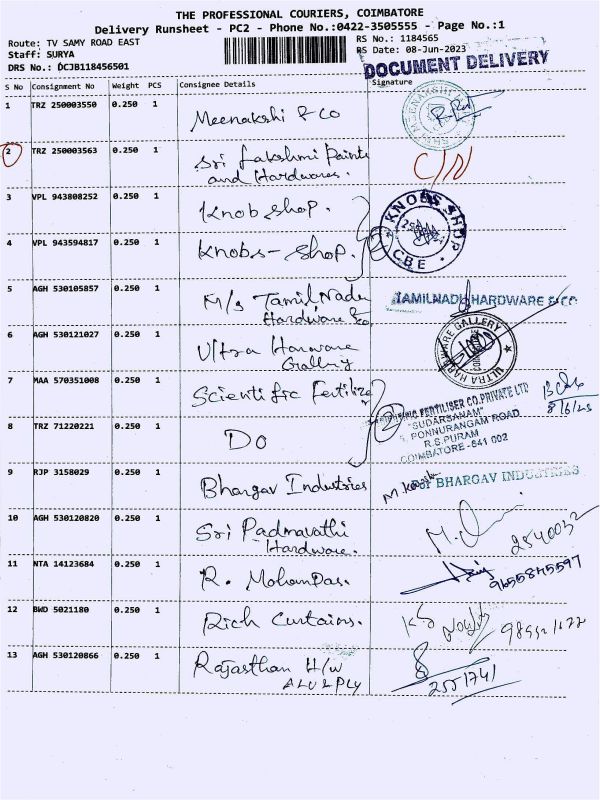 THE PROFESSIONAL COURIERS, COIMBATORE
Delivery Runsheet - PC2 - Phone No.:0422-3505555 - Page No.:1
Route: TV SAMY ROAD EAST
RS No.: 1184565
Staff: SURYA
RS Date: 08-Jun-2023
DRS No.: DCJB118456501
DOCUMENT DELIVERY
S No Consignment No Weight PCS Consignee Details Signature
1 TRZ 250003550 0.250 1 Meenakshi & Co
2 TRZ 250003563 0.250 1 Sri Lakshmi Paints
and Hardwares.
C/N
3 VPL 943808252 0.250 1 Knob shop.
KNOBS SHOP
CBE
4 VPL 943594817 0.250 1 Knobs - shop.
2
5 AGH 530105857 0.250 1 M/s Tamil Nadu
Hardware & Co
TAMILNADU HARDWARE & CO.
6 AGH 530121027 0.250 1 Ultra Harware
Gallery
ULTRA HARDWARE GALLERY
7 MAA 570351008 0.250 1 Scientific Fertilize
8 TRZ 71220221 0.250 1 Do
2
FERTILISER CO.PRIVATE LTD
"SUDARSANAM"
PONNURANGAM ROAD
R.S.PURAM
COIMBATORE -641 002
8/6/23
9 RJP 3158029 0.250 1 Bhargav Industries
For BHARGAV INDUSTRIES
10 AGH 530120820 0.250 1 Sri Padmavathi
Hardware.
2540032
11 NTA 14123684 0.250 1 R. MohanDas.
9655845597
12 BWD 5021180 0.250 1 Rich Curtains.
13 AGH 530120866 0.250 1 Rajasthan H/w
ALU & PLY
2551741